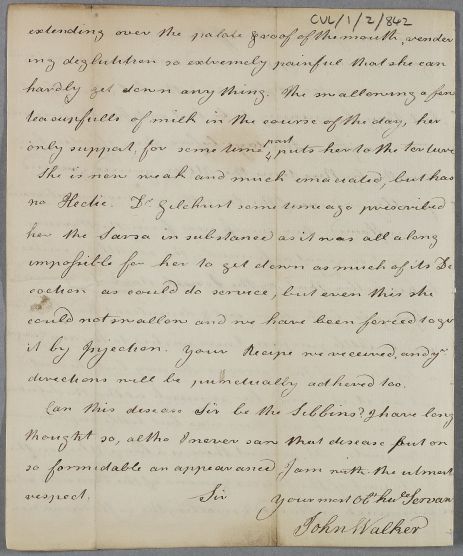 CUL/1/2/842
extending over the palate & roof of the mouth, render
ing deglutition so extremely painful that she can
hardly get down any thing. The swallowing a few
teacupfulls of milk in the course of the day, her
only support, for some time part, puts her to the torture
She is now weak and much emaciated, but has
no Hectic. Dr. Gilchrist some time ago prescribed
her the Sarsa in substance as it was all along
impossible for her to get down as much of its De
coction as could do service, but even this she
could not swallow and we have been forced to give
it by Injection. Your Recipe we received, and yr
directions will be punctually adhered too.
Can this disease Sir be the Sibbins? I have long
thought so, altho I never saw that disease put on
so formidable an appearance, I am with the utmost
respect. Sir Your most Obt. hue. Servan
John Walker